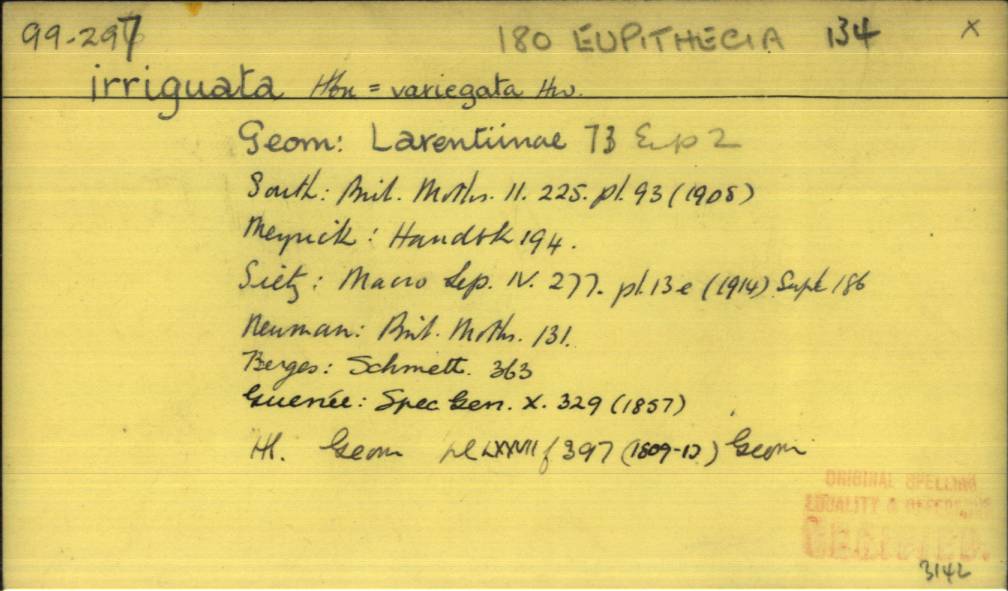 99-297 180 EUPITHECIA 134 X
irriguata Hbn = variegata Hw.
Geom: Larentiinae 73 Eup 2
South: Brit. Moths. II. 225. pl. 93 (1908)
Meyrick: Handbk 194.
Sietz: Macro Lep. IV. 277. pl. 13e (1914) Supl 186
Neuman: Brit. Moths. 131.
Berges: Schmett. 363
Guenée: Spec Gen. X. 329 (1857)
Hl. Geom pl LXXVII f 397 (1809-13) Geom
ORIGINAL SPELLING
LOCALITY & REFERENCE
3142